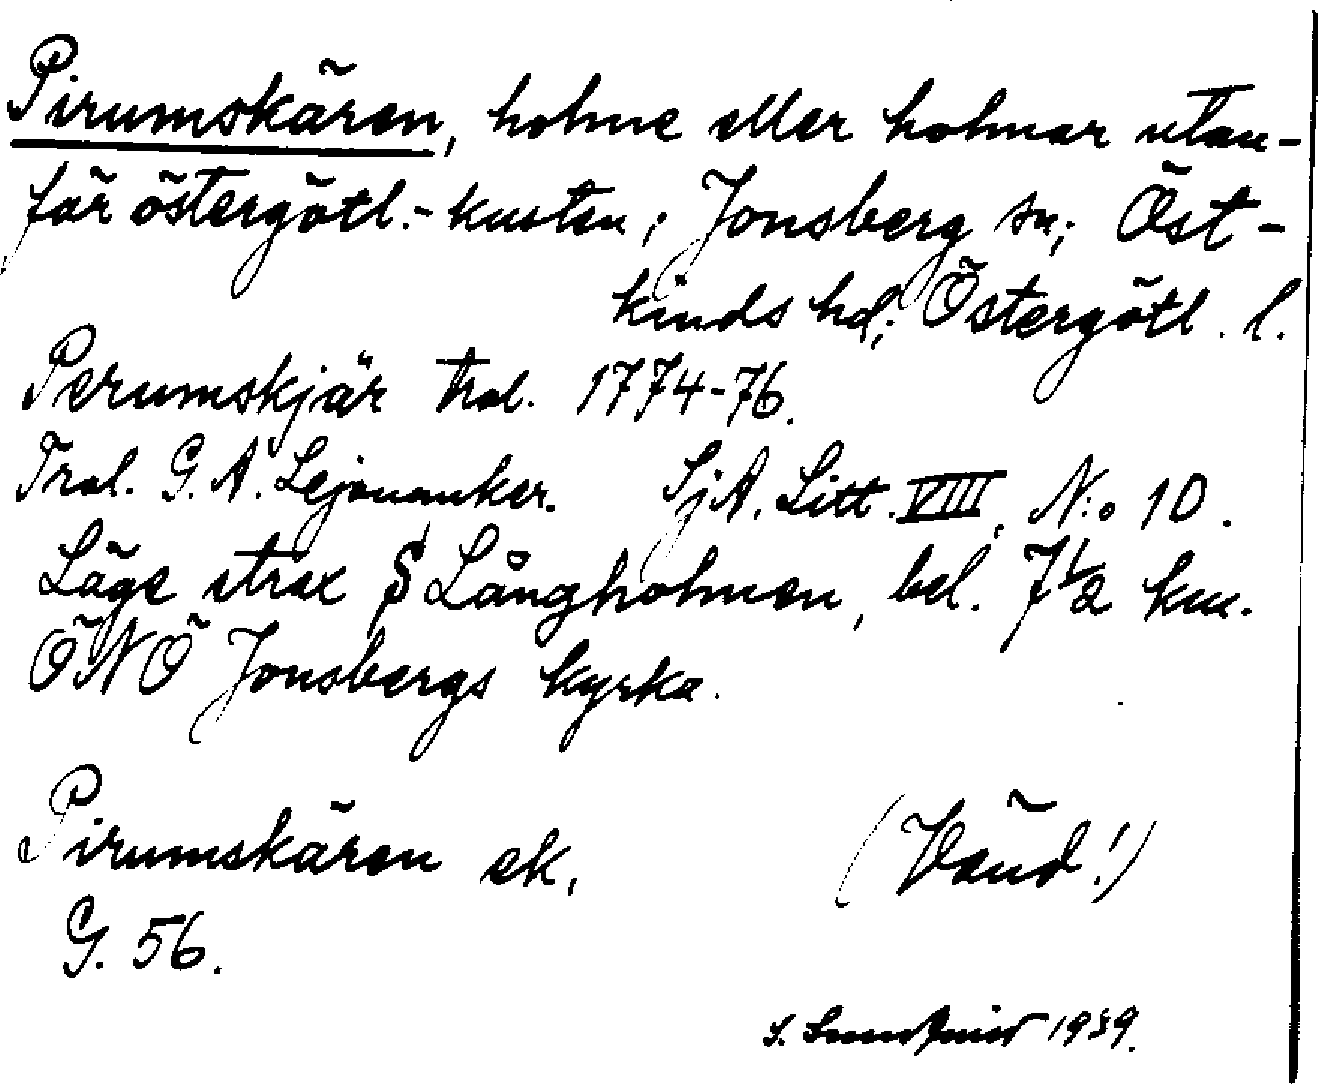 Pirumskären, holme eller holmar utan-
för östergötl.-kusten; Jonsberg sn; Öst-
kinds hd; Östergötl. l.
Perumskjär trol. 1774-76.
Trol. G. A. Lejonanker. SjA. Litt. VIII, N:o 10.
Läge strax S Långholmen, bel. 7 1/2 km.
ÖNÖ Jonsbergs kyrka.
Pirumskären ek. (Vänd!)
G. 56.
S. 1939.